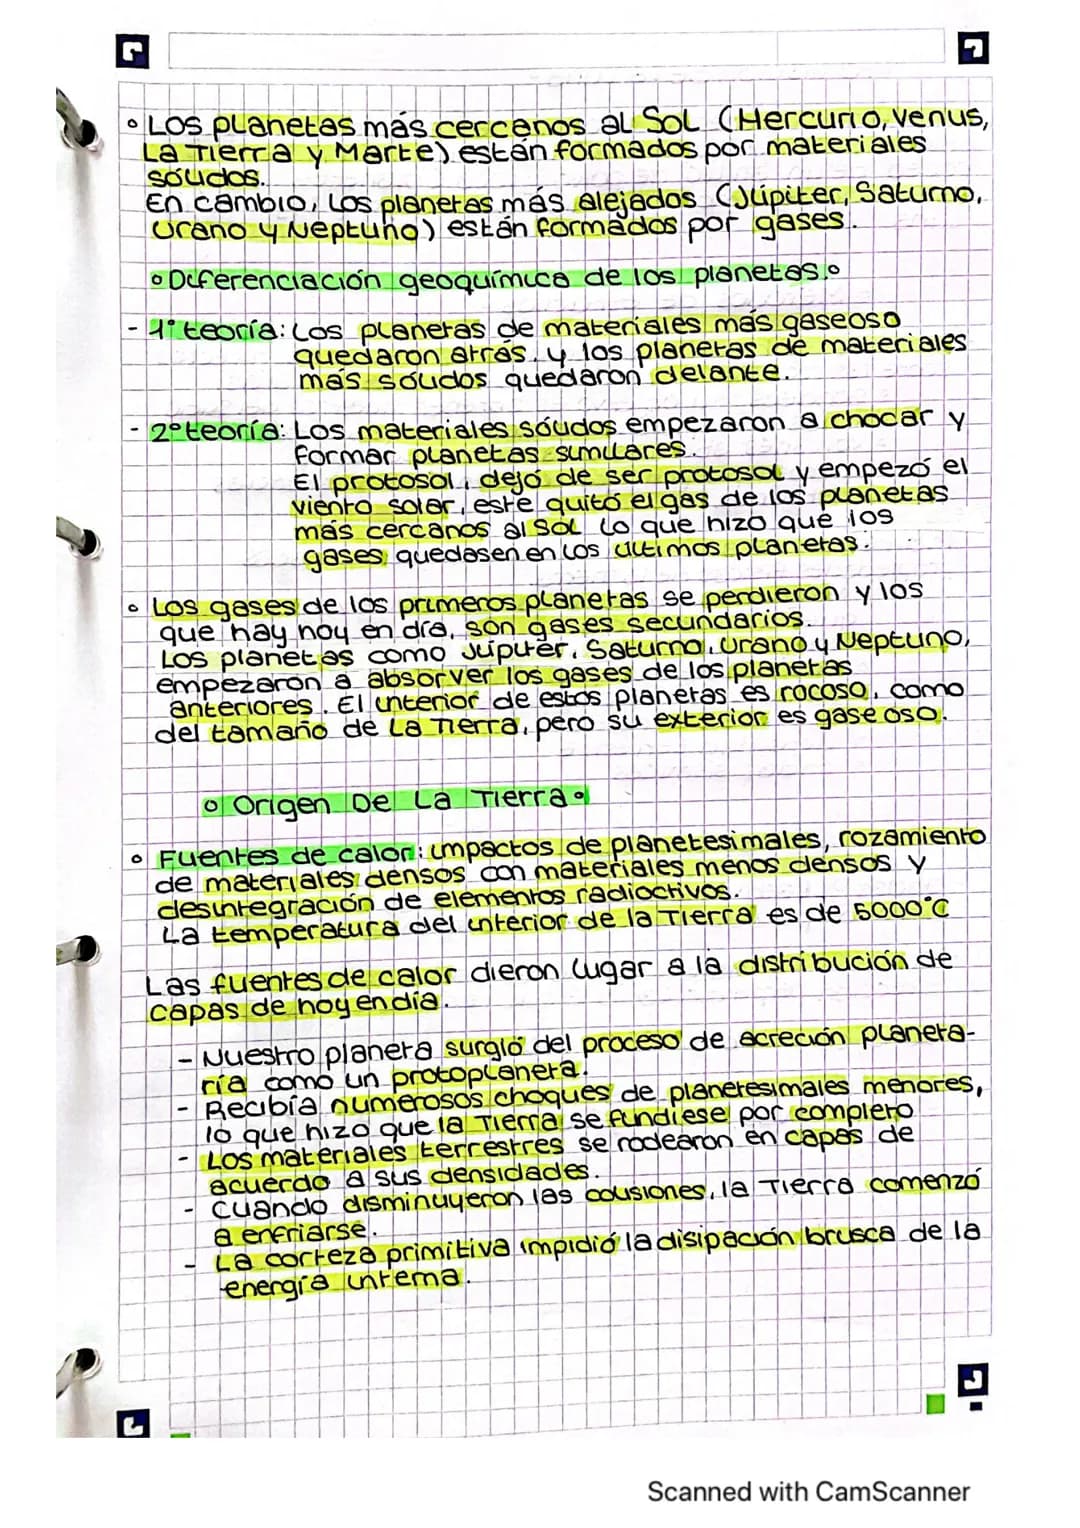 ° Los planetas más cercanos al Sol (Mercurio, Venus,
La Tierra y Marte) están formados por materiales
sólidos.
En cambio, Los planetas más alejados (Júpiter, Saturno,
Urano y Neptuno) están formados por gases.
° Diferenciación geoquímica de los planetas.°
- 1° teoría: Los planetas de materiales más gaseoso
quedaron atrás y los planetas de materiales
más sólidos quedaron delante.
- 2° teoría: Los materiales sólidos empezaron a chocar y
formar planetas similares.
El protosol, dejó de ser protosol y empezó el
viento solar, este quitó el gas de los planetas
más cercanos al sol lo que hizo que los
gases quedasen en los últimos planetas.
° Los gases de los primeros planetas se perdieron y los
que hay hoy en día, son gases secundarios.
Los planetas como Júpiter, Saturno, Urano y Neptuno,
empezaron a absorver los gases de los planetas
anteriores. El interior de estos planetas es rocoso, como
del tamaño de La Tierra, pero su exterior es gaseoso.
° Origen De La Tierra °
° Fuentes de calor: impactos de planetesimales, rozamiento
de materiales densos con materiales menos densos y
desintegración de elementos radioctivos.
La temperatura del interior de la Tierra es de 5000°C
Las fuentes de calor dieron lugar a la distribución de
capas de hoy en día.
- Nuestro planeta surgió del proceso de acreción planeta-
ría como un protoplaneta.
- Recibía numerosos choques de planetesimales menores,
lo que hizo que la Tierra se fundiese por completo
- Los materiales terrestres se rodearon en capas de
acuerdo a sus densidades.
- Cuando disminuyeron las colisiones, la Tierra comenzó
a enfriarse.
- La corteza primitiva impidió la disipación brusca de la
energía interna.
Scanned with CamScanner